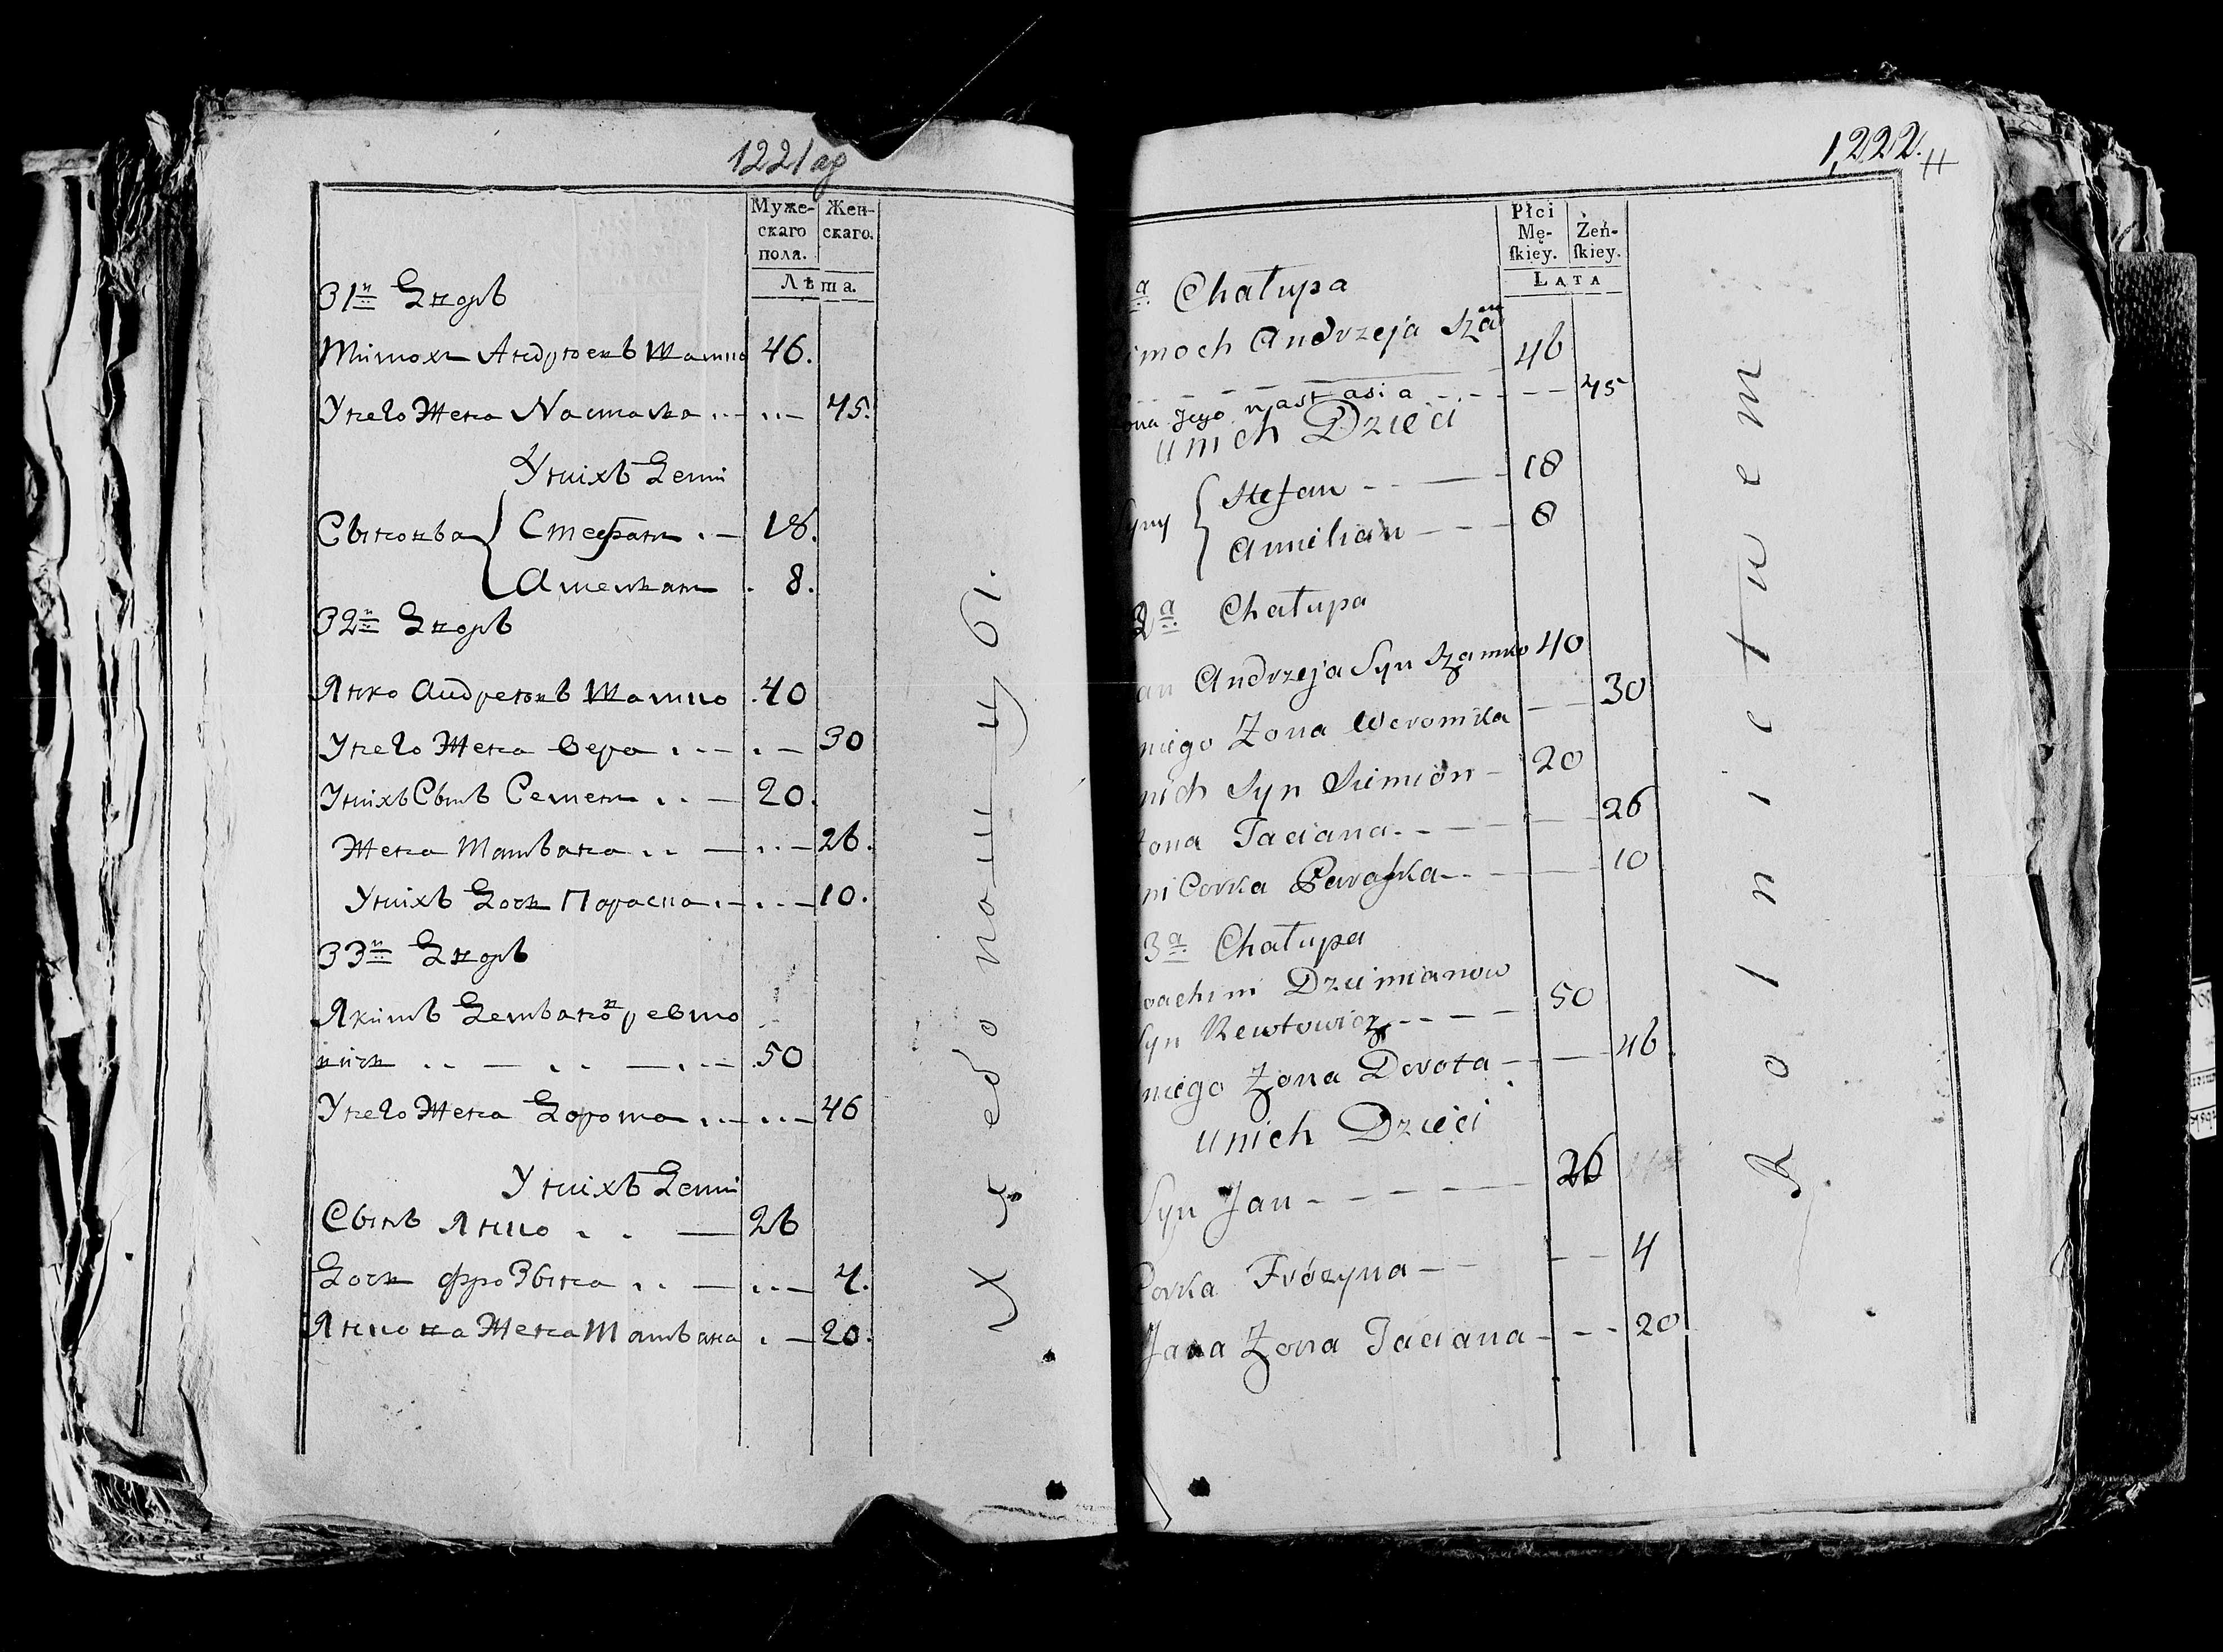 1221 об
Муже-
скаго
пола.
Жен-
скаго.
Лѣта.
31й Дворъ
Тимохъ Андреевъ Шамко 46.
У него Жена Настазя 45.
У нихъ Дети
Сыновья { Стефанъ 18.
Амельянъ 8.
32й Дворъ
Янко Андреевъ Шамко 40
У него Жена Вера 30
У нихъ Сынъ Семенъ 20.
Жена Татьяна 26.
У нихъ Дочь Параска 10.
33й Дворъ
Якимъ Демьяновъ Ревто
вичь 50
У него Жена Дорота 46
У нихъ Дети
Сынъ Янко 26
Дочь Фрозына 4.
Янкова Жена Татьяна 20.
Хлебопашцы
1,222.
Płci
Mę-
ſkiey.
Żeń-
ſkiey.
LATA
a Chałupa
imoch Andrzeja Szam 46
ona Jego Nastasia 45
u nich Dzieci
Syny { Stefan 18
Amilian 8
2a Chałupa
an Andrzeja Syn Szamko 40
niego Zona Weronika 30
nich Syn Simion 20
ona Taciana 26
ni Corka Paraſka 10
3a Chałupa
oachim Dziimianow
Syn Rewtowicz 50
niego Zona Dorota 46
u nich Dzieci
Syn Jan 26
Corka Frózyna 4
Jana Zona Taciana 20
Rolnictwem